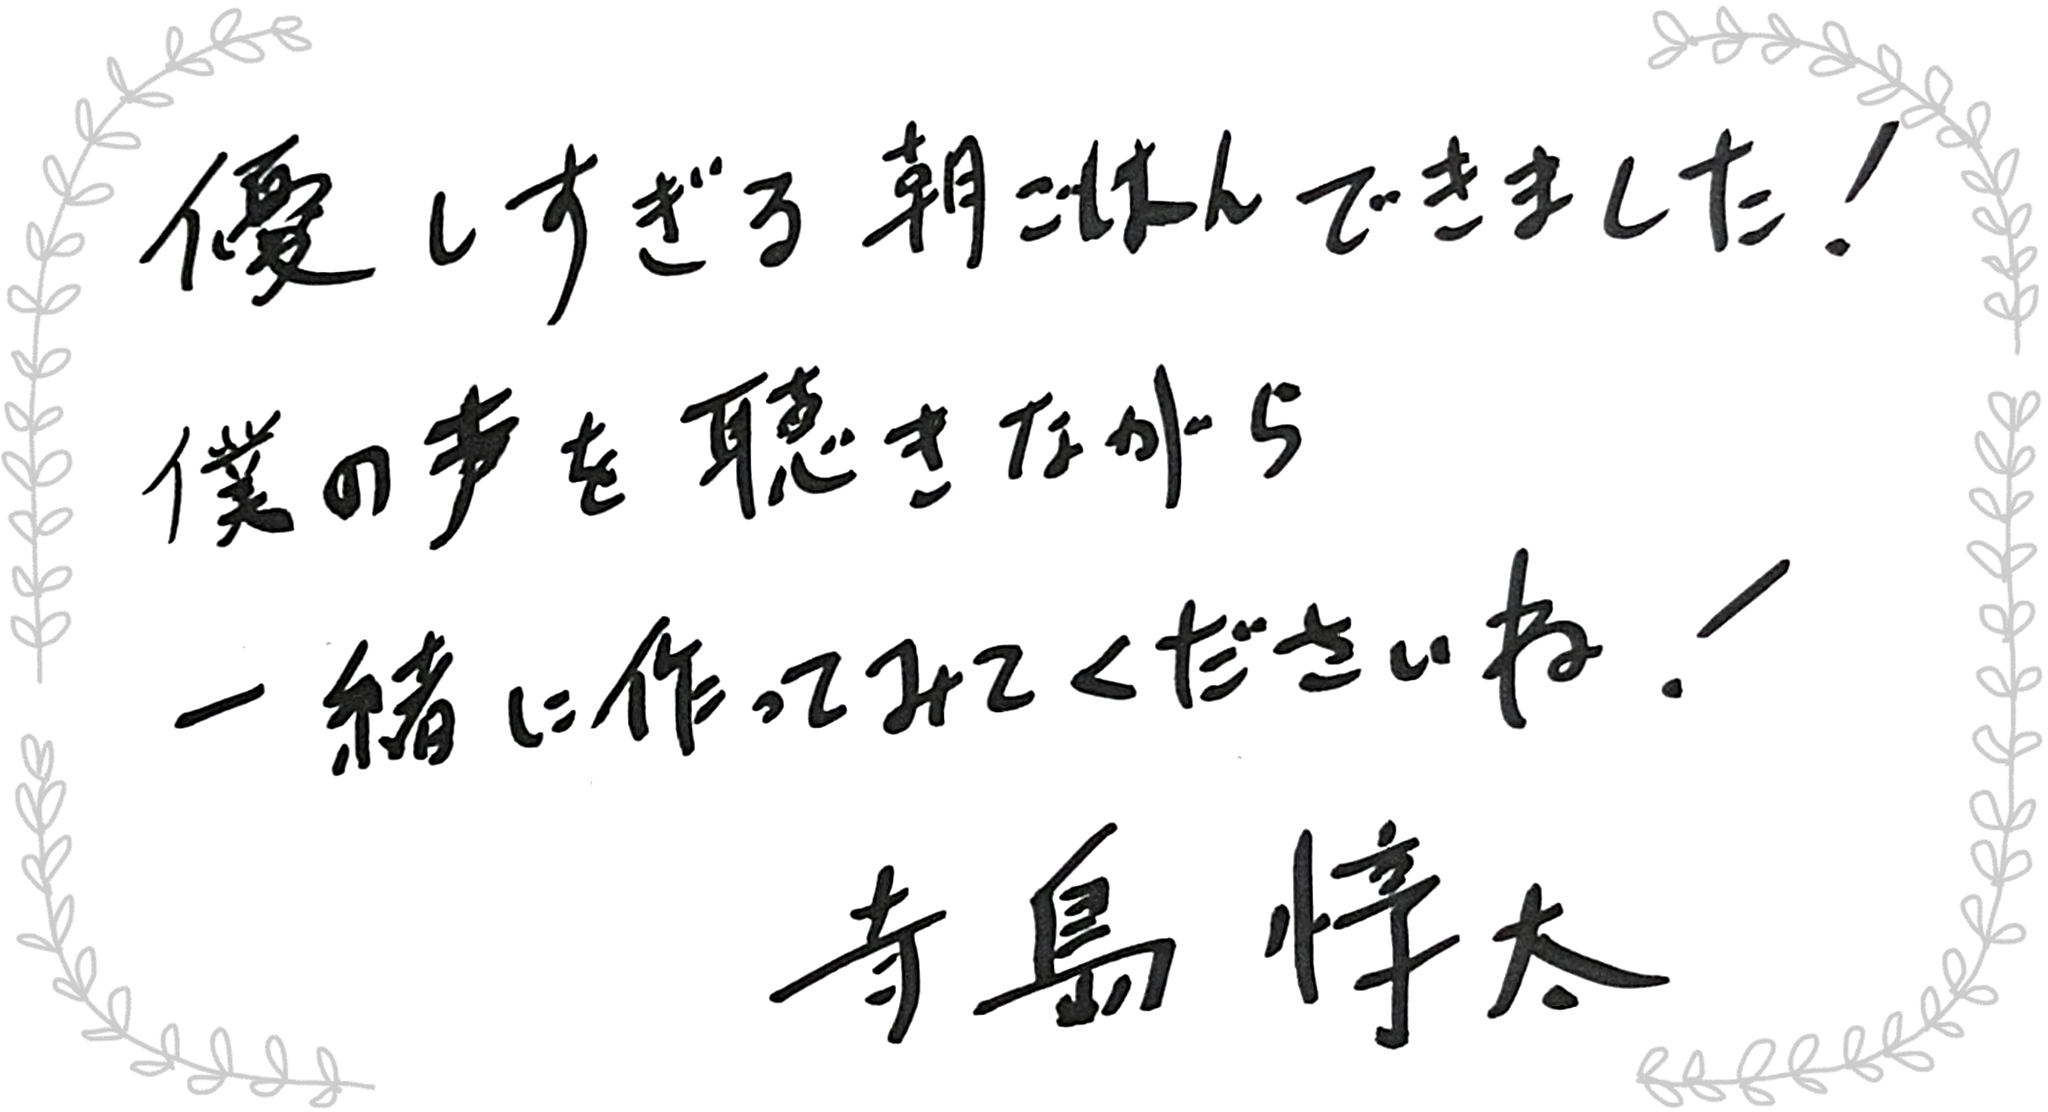 優しすぎる朝ごはんできました!
僕の声を聴きながら
一緒に作ってみてくださいね!
寺島惇太